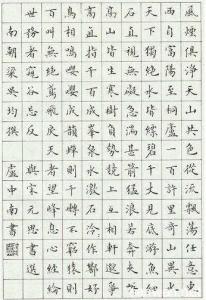 風煙俱淨天山共色從流飄蕩任意東
西自富陽至桐廬一百許里奇山異水
天下獨絕水皆縹碧千丈見底游魚細
石直視無礙急湍甚箭猛浪若奔夾岸
高山皆生寒樹負勢競上互相軒邈爭
高直指千百成峰泉水激石泠泠作響好
鳥相鳴嚶嚶成韻蟬則千轉不窮猿則
百叫無絕鳶飛戾天者望峰息心經綸
世務者窺谷忘反 與宋元思書 選
南朝梁吳均撰 虛中南書